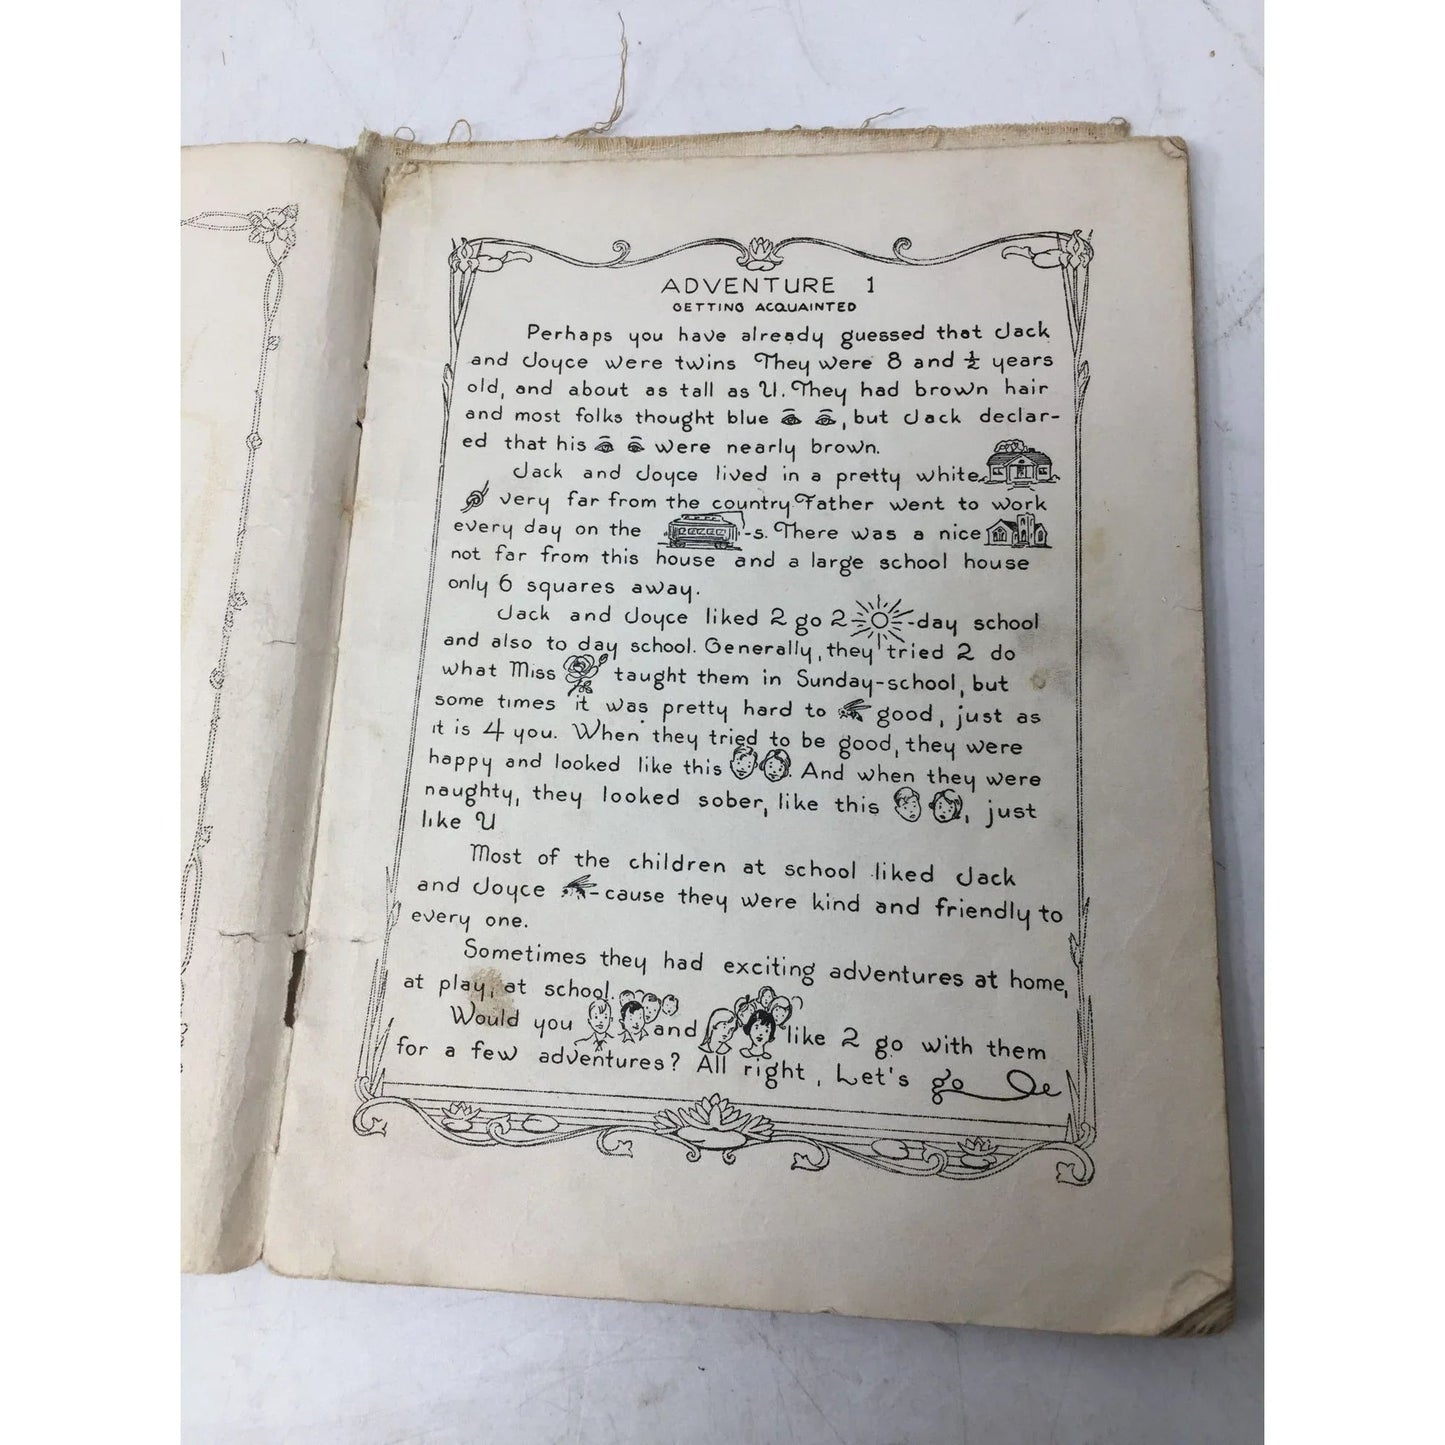 ADVENTURE 1
GETTING ACQUAINTED
Perhaps you have already guessed that Jack
and Joyce were twins They were 8 and ½ years
old, and about as tall as U. They had brown hair
and most folks thought blue , but Jack declar-
ed that his were nearly brown.
Jack and Joyce lived in a pretty white
very far from the country. Father went to work
every day on the -s. There was a nice
not far from this house and a large school house
only 6 squares away.
Jack and Joyce liked 2 go 2 -day school
and also to day school. Generally, they tried 2 do
what Miss taught them in Sunday-school, but
some times it was pretty hard to good, just as
it is 4 you. When they tried to be good, they were
happy and looked like this . And when they were
naughty, they looked sober, like this , just
like U
Most of the children at school liked Jack
and Joyce -cause they were kind and friendly to
every one.
Sometimes they had exciting adventures at home,
at play, at school.
Would you and like 2 go with them
for a few adventures? All right, Let's go